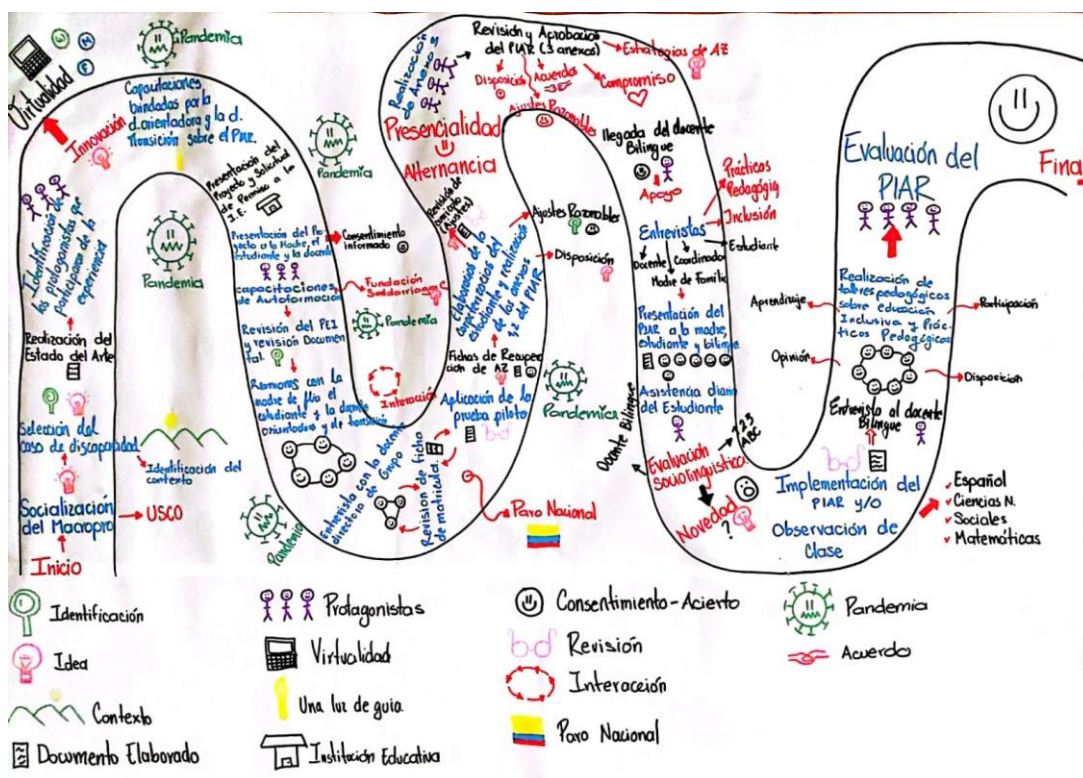 Inicio
Socialización
del Macropro
USCO
Selección del
caso de discapacidad
Identificación del
contexto
Realización del
Estado del Arte
Identificación de
los protagonistas que
participaran de la
experiencia
Innovación
Virtualidad
W
M
F
Pandemia
Capacitaciones
brindadas por la
d. orientadora y la d.
Transición sobre el PIAR.
Pandemia
Presentación del
Proyecto y Solicitud
de Permiso a la
I.E.
Pandemia
Presentación del Pro
yecto a la Madre, el
estudiante y la docente
Consentimiento
informado
Capacitaciones
de Autoformación
Fundación
Saldarriaga C
Pandemia
Revisión del PEI
y revisión Documen
tal.
Reuniones con la
madre de flia el
estudiante y la docente
orientadora y de transición
Interacción
Pandemia
Entrevista con la docente
directora de Grupo
Revisión de ficha
de matrícula.
Aplicación de la
prueba piloto
Paro Nacional
Pandemia
Fichas de Recuper
ación de AZ
Elaboración de la
caracterización del
estudiante y realización
de los anexos
1,2 del PIAR
Ajustes Razonables
Disposición
Revisión de
(Ajustes)
Alternancia
Presencialidad
Realización
de Anexo 3
Revisión y Aprobación
del PIAR (3 anexos)
Estrategias de AZ
Disposición
Acuerdos
Compromiso
Ajustes Razonables
llegada del docente
Bilingüe
Apoyo
Entrevistas
Prácticas
Pedagógic
Inclusión
Estudiante
Docente
Coordinador
Madre de Familia
Presentación del
PIAR a la madre,
estudiante y bilingüe
Asistencia diaria
del Estudiante
Docente Bilingüe
Evaluación
Sociolinguistica.
123
ABC
Novedad
?
Implementación del
PIAR y/o
Observación de
Clase
Español
Ciencias N.
Sociales
Matemáticas
Entrevista al docente
Bilingüe
Realización de
talleres pedagógicos
sobre educación
Inclusiva y Prác-
ticas Pedagógicas
Aprendizaje
Participación
Opinión
Disposición
Evaluación del
PIAR
Final
Identificación
Idea
Contexto
Documento Elaborado
Protagonistas
Virtualidad
Una luz de guia.
Institución Educativa
Consentimiento-Acierto
Revisión
Interacción
Paro Nacional
Pandemia
Acuerdo